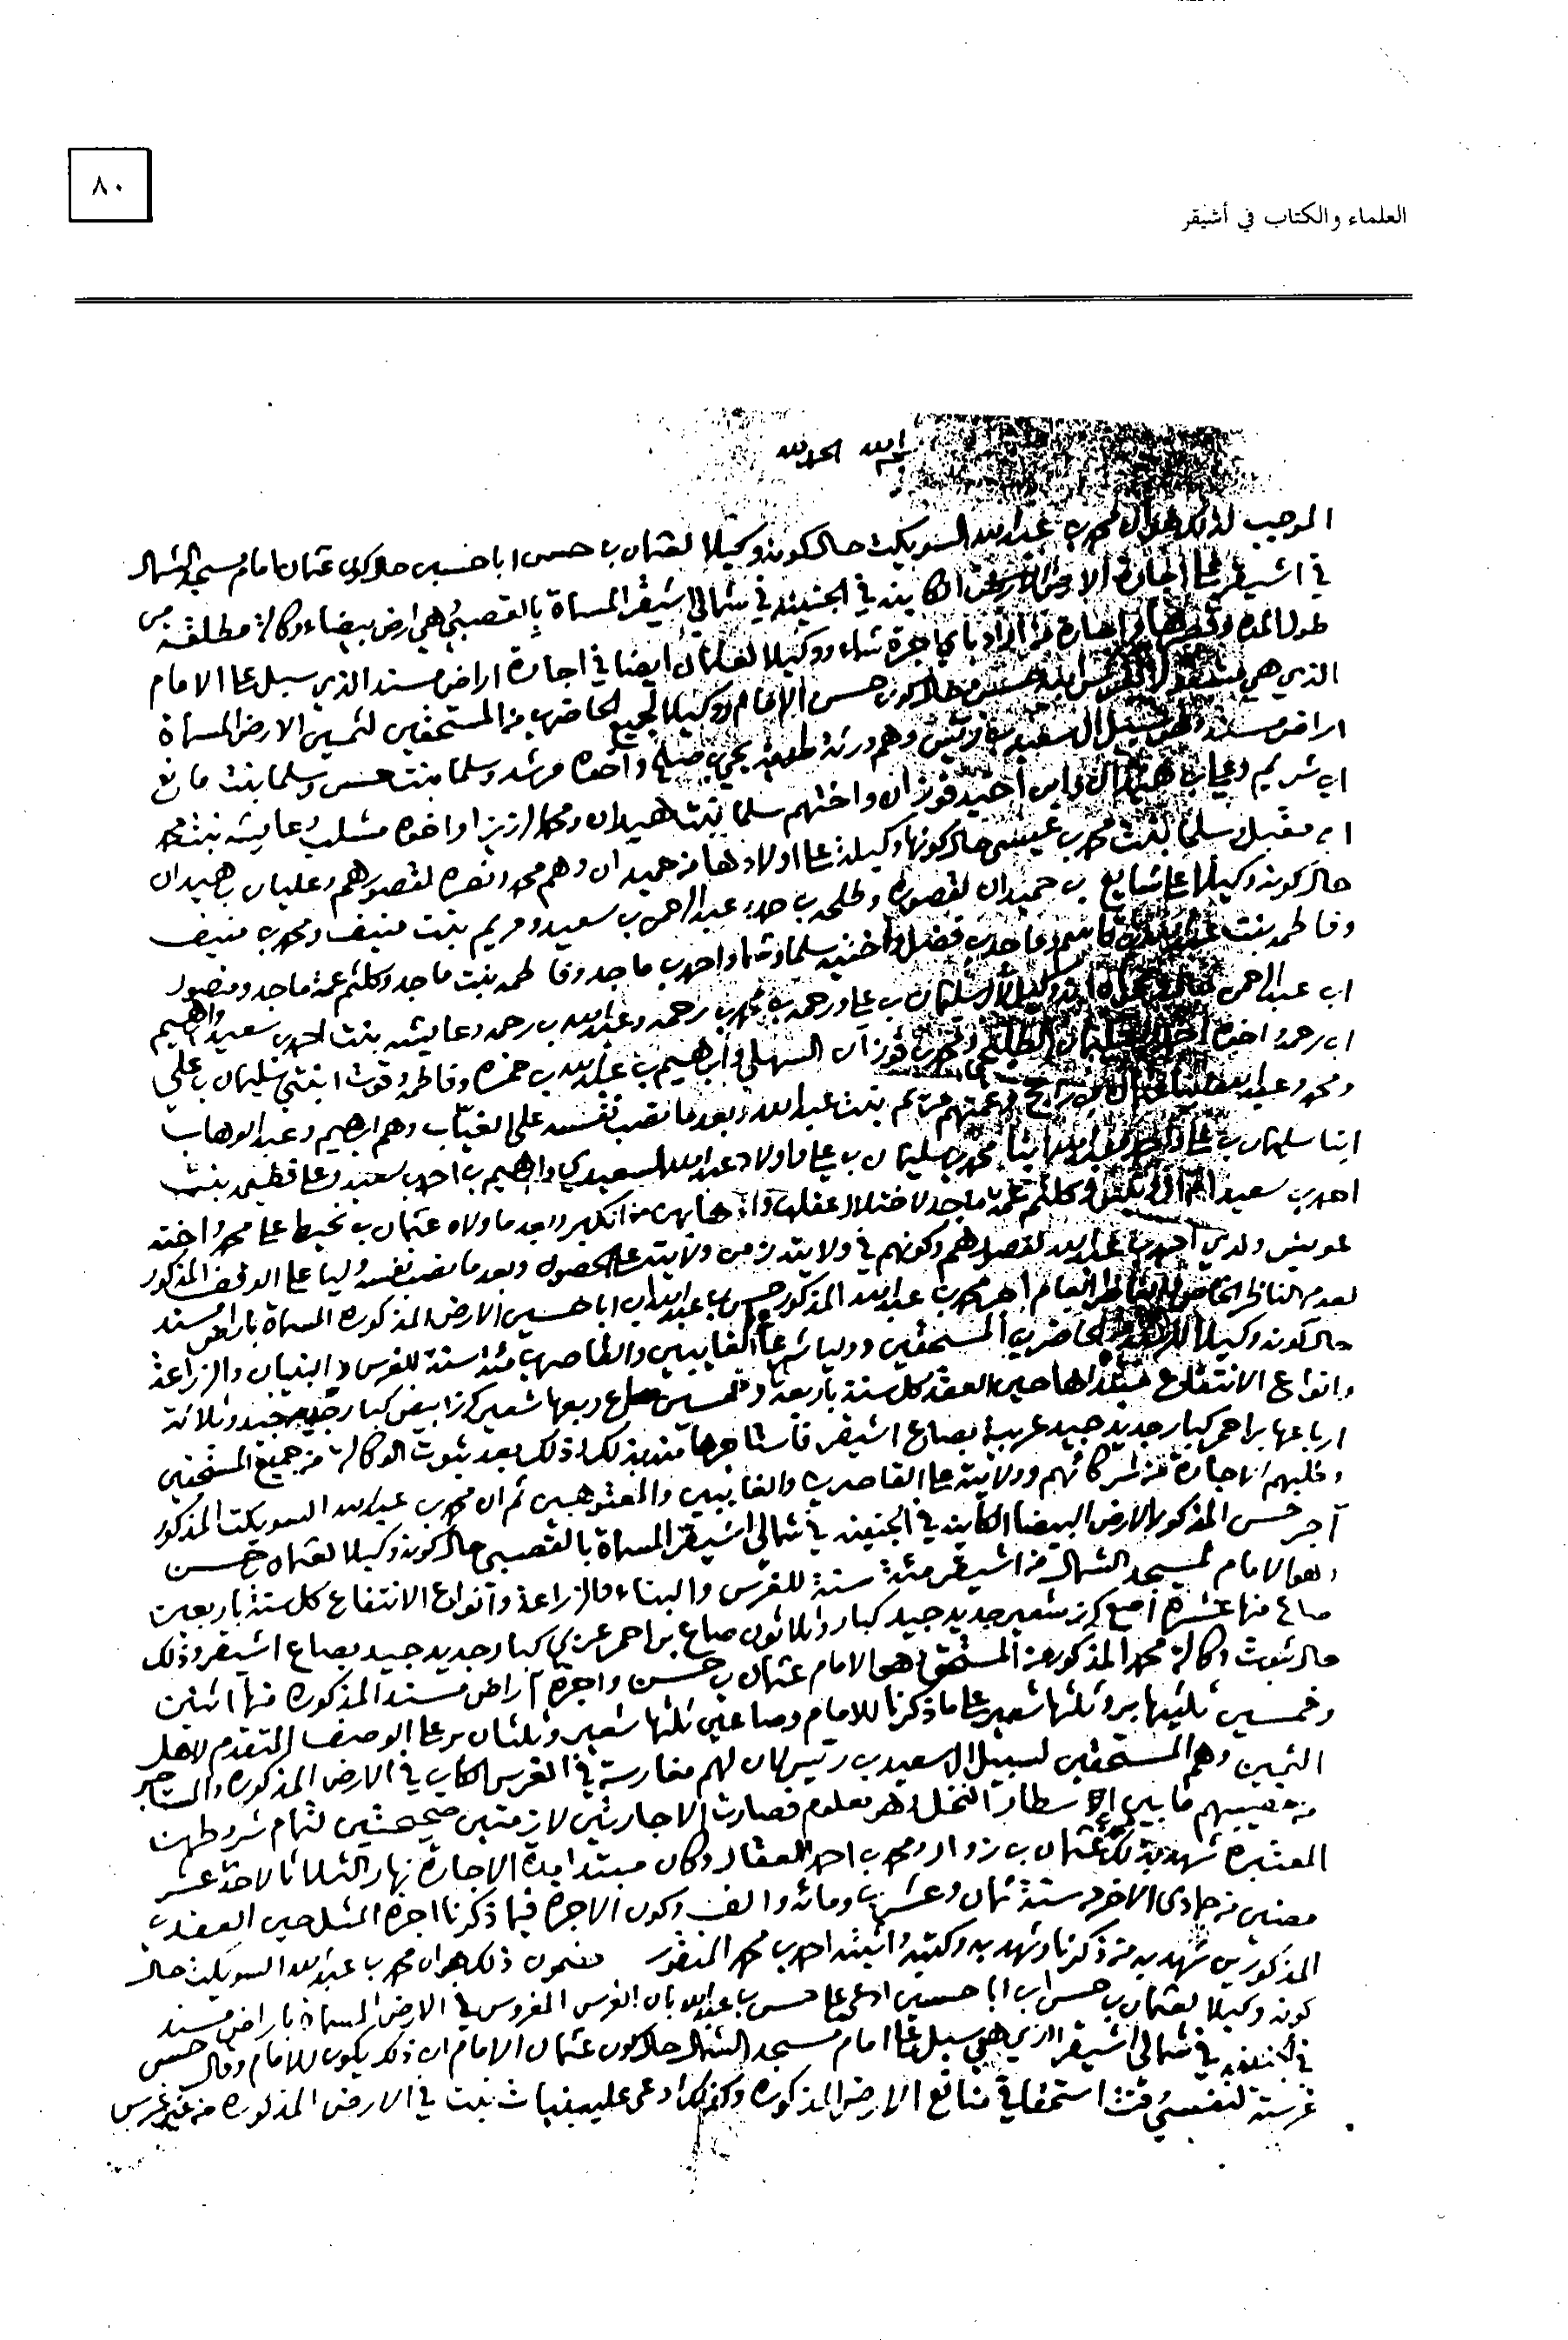 ٨٠
العلماء والكتاب في أشيقر
بسم الله الحمد لله
الموجب لذلك هو ان محمد بن عبدالله السويكت حال كونه وكيلا لعثمان بن حسن ابا حسين حال كون عثمان امام مسجد الشمال
في اشيقر على اجارة الارض الكاينة في الجنينة في شمالي اشيقر المسماة بالقصيبى وهي ارض بيضاء وكالة مطلقة من
طول المدة وقصرها اراد باي اجرة شاء ووكيلا لعثمان ايضا في اجارة اراض مسند الذي سبل على الامام
الذي هي حسن حال كون حسن الامام ووكيلا لجميع الحاضرين من المستحقين لثمين الارض المسماة
اراض مسند وهو سبيل ال سعيد بن وهم ورثة يحيى بن واخوه مرشد وسلما بنت حسن وسلما بنت مانع
ابن شريم واخيه فوزان واختهم سلما بنت هيدان واخوه وعايشه بنت محمد
ابن مقبل وسلما بنت محمد بن عيسى حال كونها وكيلة على اولادها من حميدان وهم محمد ونصره لقصورهم وعليان بن حميدان
حال كونه وكيلا على شايع بن حميدان لقصوره عبدالرحمن بن سعيد ومريم بنت منيف ومحمد بن منيف
وفاطمه بنت قاسم وماجد بن فضل واختيه سلما واحمد بن ماجد وفاطمه بنت ماجد وكلثم عمة ماجد ومنصور
ابن عبدالرحمن وكيلا سليمان بن علي ورحمه بن محمد بن رحمه وعبدالله بن رحمه وعايشه بنت احمد بن سعيد وابراهيم
ابن رحمه واخوه ومحمد بن فوزان السهلي وابراهيم بن عبدالله بن حمزه وفاطمه وقوت ابنتي سليمان بن علي
ومحمد وعبدالله وعمتهم مريم بنت عبدالله وبعد ما نصب نفسه على الغياب وهم ابرهيم وعبدالوهاب
ابنا سليمان بن علي ابنا محمد بن سليمان بن علي واولاد عبدالله السعيدي وابرهيم بن احمد بن سعيد وعلى فطيمه بنت
احمد بن سعيد وكلثم عمة ماجد لاختلال عقلها من الكبر وبعد ما ولاه عثمان بن نحيط على محمد واخته
عويس ولدي احمد بن عبدالله لقصورهم وكونهم في ولايته زمن ولايته على الحصون وبعد ما نصب نفسه وليا على الوقف المذكور
لعدم الناظر الخاص والناظر العام اجر محمد بن عبدالله المذكور حسن بن عبدالله ابا حسين الارض المذكوره المسماة باراض مسند
حال كونه وكيلا الحاضرين المستحقين ووليا شرعيا على الغايبين والقاصرين مئة سنة للغرس والبنيان والزراعة
وانواع الانتفاع مبتداها حين العقد كل سنة باربعة وخمسين صاع ربعها شعير كرز ابيض كبار جديد جيد وثلاثة
ارباعها بر احمر كبار جديد جيد عربية بصاع اشيقر فاستاجرها منه بذلك وذلك بعد ثبوت الوكالة من جميع المستحقين
وطلبهم الاجارة من شركائهم وولايته على القاصرين والغايبين والمعتوهين ثم ان محمد بن عبدالله السويكت المذكور
آجر حسن المذكور الارض البيضا الكاينه في الجنينه في شمالي اشيقر المسماة بالقصيبى حال كونه وكيلا لعثمان بن حسن
وهو الامام لمسجد الشمال من اشيقر مئة سنة للغرس والبناء والزراعة وانواع الانتفاع كل سنة باربعين
صاع منها عشرة اصع كرز شعير جديد جيد كبار وثلاثون صاع بر احمر عربي كبار جديد جيد بصاع اشيقر وذلك
حال ثبوت وكالة محمد المذكور عن المستحق وهو الامام عثمان بن حسن واجرة اراض مسند المذكوره منها اثنين
وخمسين ثلثيها بر وثلثها شعير على ما ذكرنا للامام وصاعين ثلثها شعير وثلثان بر على الوصف المتقدم لاهل
الثمين وهم المستحقين لسبيل ال سعيد بن ريس لان لهم مغارسة في الغرس الكاين في الارض المذكوره والمستاجر
من نصيبهم ما بين اسطار النخل وهو معلوم فصارت الاجارتين لازمتين صحيحتين لتمام شروطهن
المعتبره شهد بذلك عثمان بن زوار ومحمد بن احمد القصار وكان مبتدا مدة الاجارة نهار الثلاثا لاحد عشر
مضين من جمادى الاخره سنة ثمان وعشرين ومائه والف وكون الاجرة فيما ذكرنا اجرة المثل حين العقدين
المذكورين شهد به من ذكرنا وشهد به وكتبه واثبته احمد بن محمد المنقور مضمون ذلك هو ان محمد بن عبدالله السويكت حال
كونه وكيلا لعثمان بن حسن ابن ابا حسين ادعى على حسن بن عبدالله بان الغرس المغروس في الارض المسماة باراض مسند
في الجنينه في شمالي اشيقر الذي هي سبل على امام مسجد الشمال حال كون عثمان الامام ان ذلك يكون للامام وقال حسن
غرسته لنفسي وقت استحقاقي منافع الارض المذكوره وكذلك ادعى عليه بنبات نبت في الارض المذكوره من غير غرس